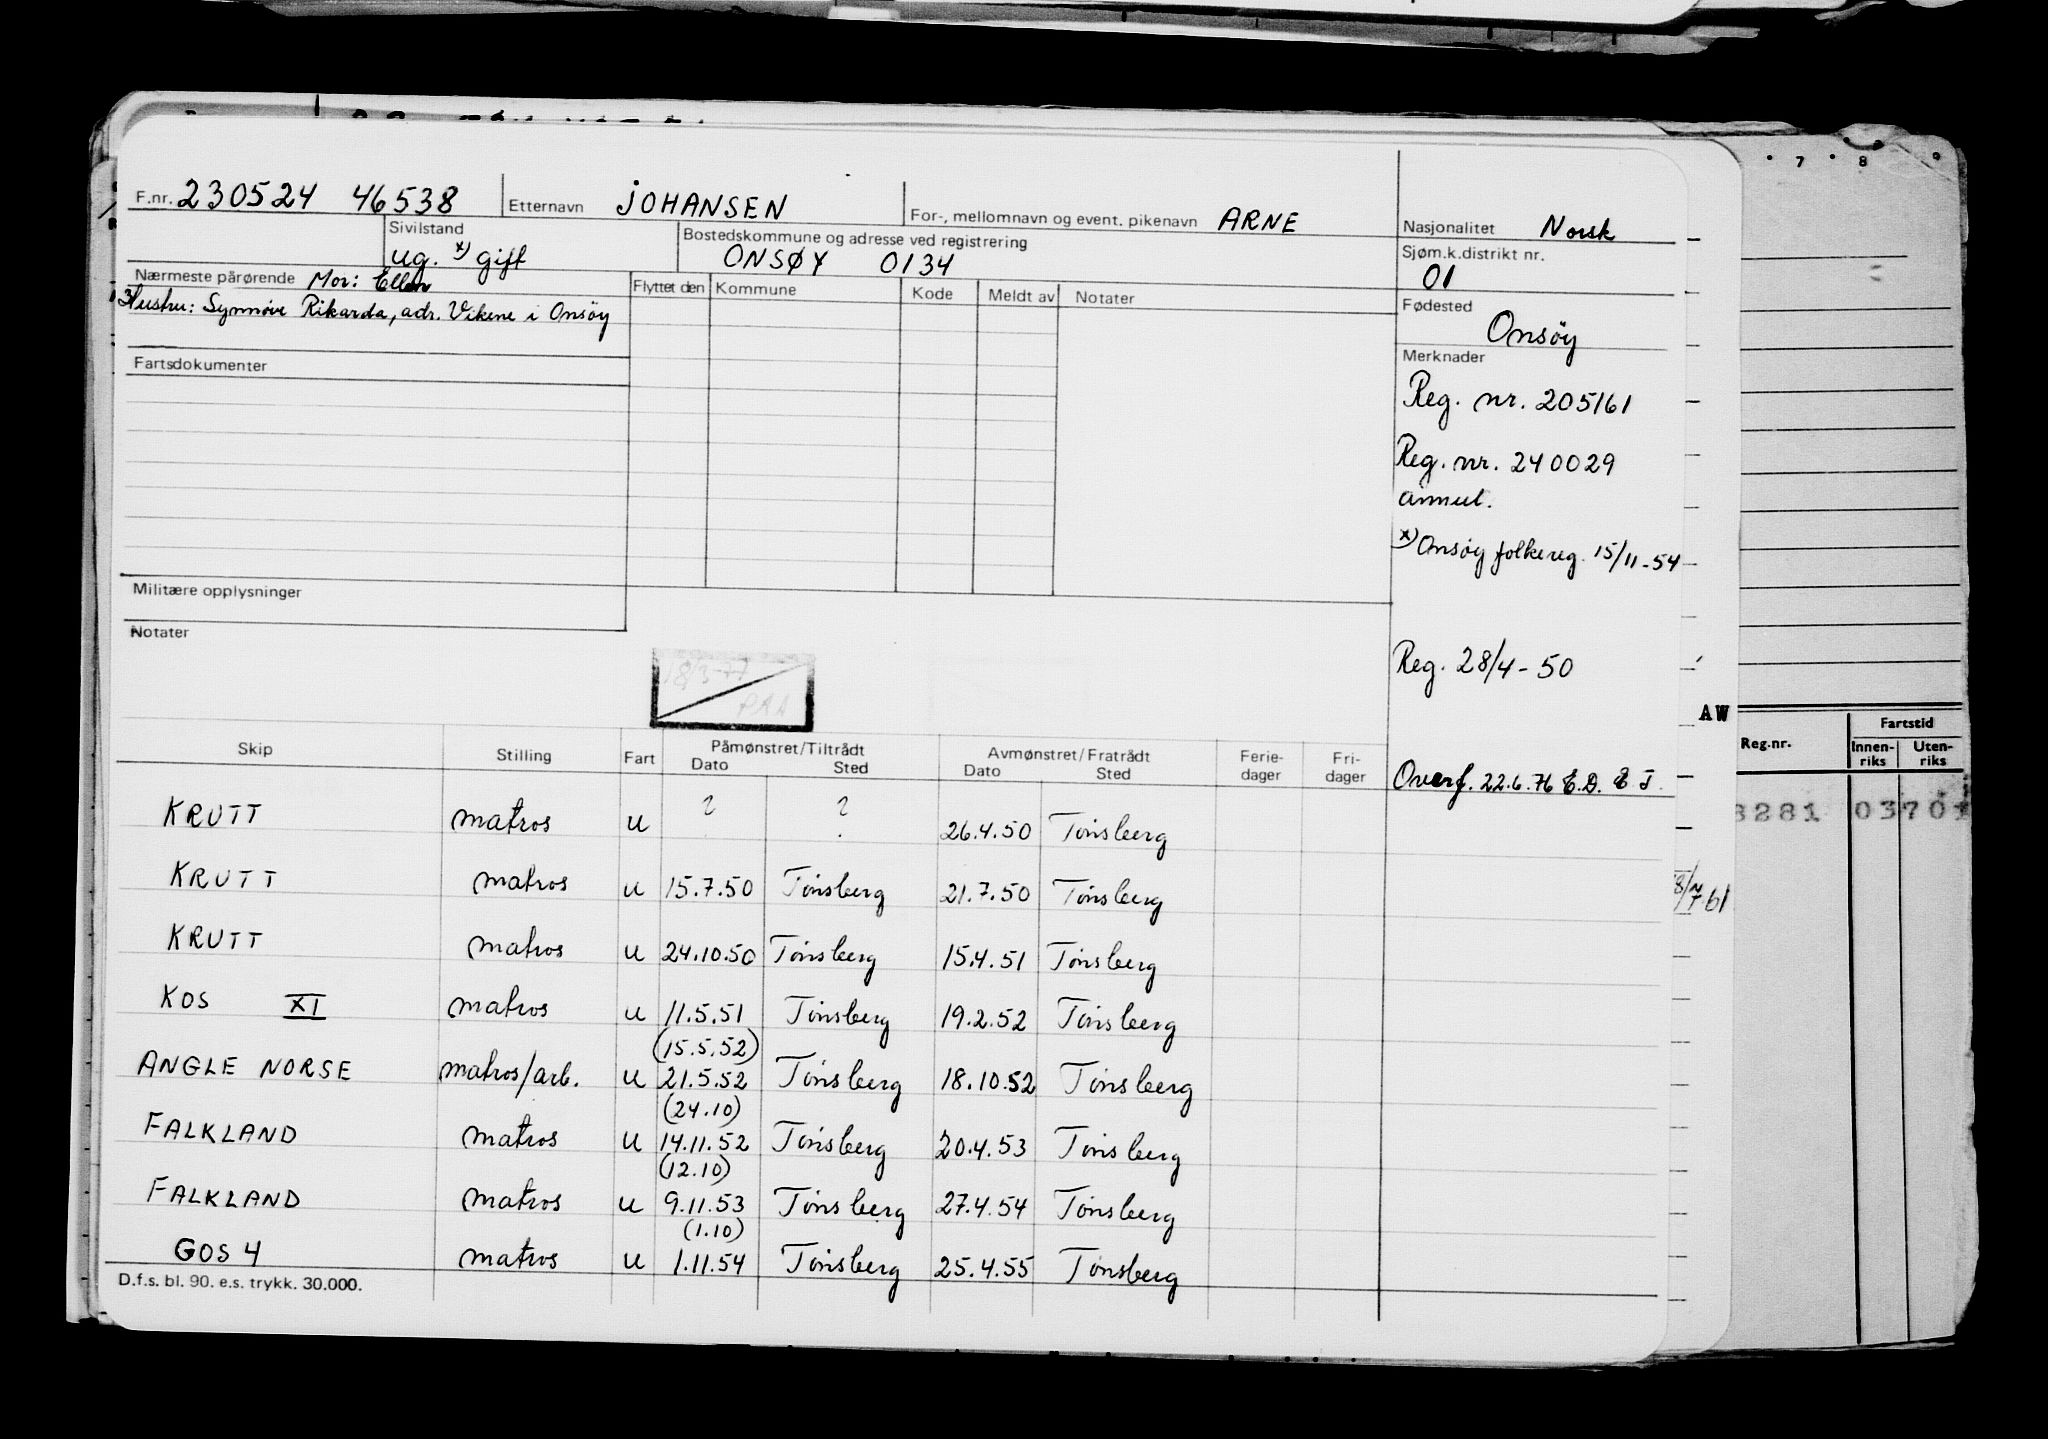 7 8 9
F.nr. 230524 46538 Etternavn JOHANSEN For-, mellomnavn og event. pikenavn ARNE Nasjonalitet Norsk
Sivilstand ug. x) gift Bostedskommune og adresse ved registrering ONSØY 0134 Sjøm.k.distrikt nr. 01
Nærmeste pårørende Mor: Ellen
Hustru: Synnøve Rikarda, adr. Vikene i Onsøy
Flyttet den Kommune Kode Meldt av Notater
Fødested Onsøy
Fartsdokumenter
Merknader
Reg. nr. 205161
Reg. nr. 240029
annul.
x) Onsøy folkereg. 15/11-54
Militære opplysninger
Notater
18/3-77
PAA
Reg. 28/4-50
AW
Skip Stilling Fart Påmønstret/Tiltrådt Dato Sted Avmønstret/Fratrådt Dato Sted Ferie-dager Fri-dager
Overf. 22.6.76 E.D. E J.
KRUTT matros u ? ? 26.4.50 Tønsberg
KRUTT matros u 15.7.50 Tønsberg 21.7.50 Tønsberg
KRUTT matros u 24.10.50 Tønsberg 15.4.51 Tønsberg
KOS XI matros u 11.5.51 Tønsberg 19.2.52 Tønsberg
(15.5.52)
ANGLE NORSE matros/arb. u 21.5.52 Tønsberg 18.10.52 Tønsberg
(24.10)
FALKLAND matros u 14.11.52 Tønsberg 20.4.53 Tønsberg
(12.10)
FALKLAND matros u 9.11.53 Tønsberg 27.4.54 Tønsberg
(1.10)
GOS 4 matros u 1.11.54 Tønsberg 25.4.55 Tønsberg
D.f.s. bl. 90. e.s. trykk. 30.000.
Reg.nr. Fartstid
Innen-riks Uten-riks
8281 03701